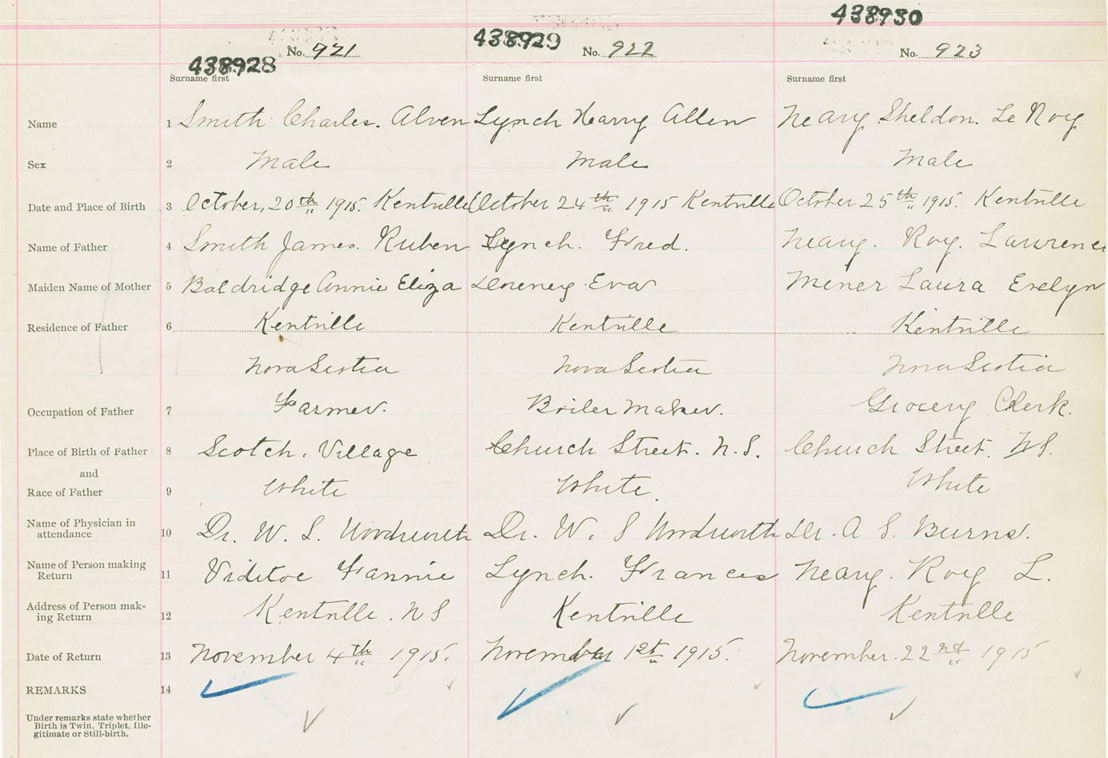 438930
438929
438928
No. 921
No. 922
No. 923
Surname first
Surname first
Surname first
Name 1 Smith Charles. Alven Lynch Harry Allen Neary Sheldon. Le Roy
Sex 2 Male Male Male
Date and Place of Birth 3 October, 20th 1915. Kentville October 24th 1915 Kentville October 25th 1915. Kentville
Name of Father 4 Smith James. Ruben Lynch. Fred. Neary. Roy. Laurence
Maiden Name of Mother 5 Baldridge Annie Eliza Eva Miner Laura Evelyn
Residence of Father 6 Kentville Kentville Kentville
Nova Scotia Nova Scotia Nova Scotia
Occupation of Father 7 Farmer. Boiler Maker. Grocery Clerk.
Place of Birth of Father 8 Scotch. Village Church Street. N.S. Church Street. N.S.
and
Race of Father 9 White White. White
Name of Physician in
attendance 10 Dr. W. S. Woodworth Dr. W. S Woodworth Dr. A S. Burns.
Name of Person making
Return 11 Viditoe Fannie Lynch. Frances Neary. Roy L.
Address of Person mak-
ing Return 12 Kentville. N S Kentville Kentville
Date of Return 13 November 4th 1915. November 1st 1915. November. 22nd 1915
REMARKS 14
Under remarks state whether
Birth is Twin, Triplet, Ille-
gitimate or Still-birth.